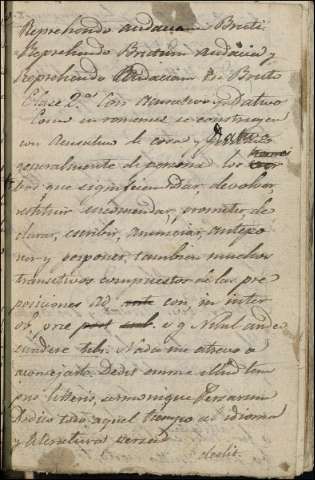 Reprehendo audaciam Bruti
Reprehendo Brutum audacia y
reprehendo audaciam in Bruto
Clase 2.a Con Acusativo y Dativo
Como en romance se construyen
con Acusativo de cosa y Dativo
generalmente de persona los
bos que significan dar, devolver,
restituir encomendar, prometer, de
clarar, escribir, anunciar, antepo
ner y posponer, tambien muchos
transitivos compuestos de las pre
posiciones ad con in inter
ob, pre v g Nihil audeo
suadere tibi. Nada me atrevo a
aconsejarte. Dedit omne illud tem
pus litteris, sermonique Persarum
Dedico todo aquel tiempo al idioma
y literatura persa